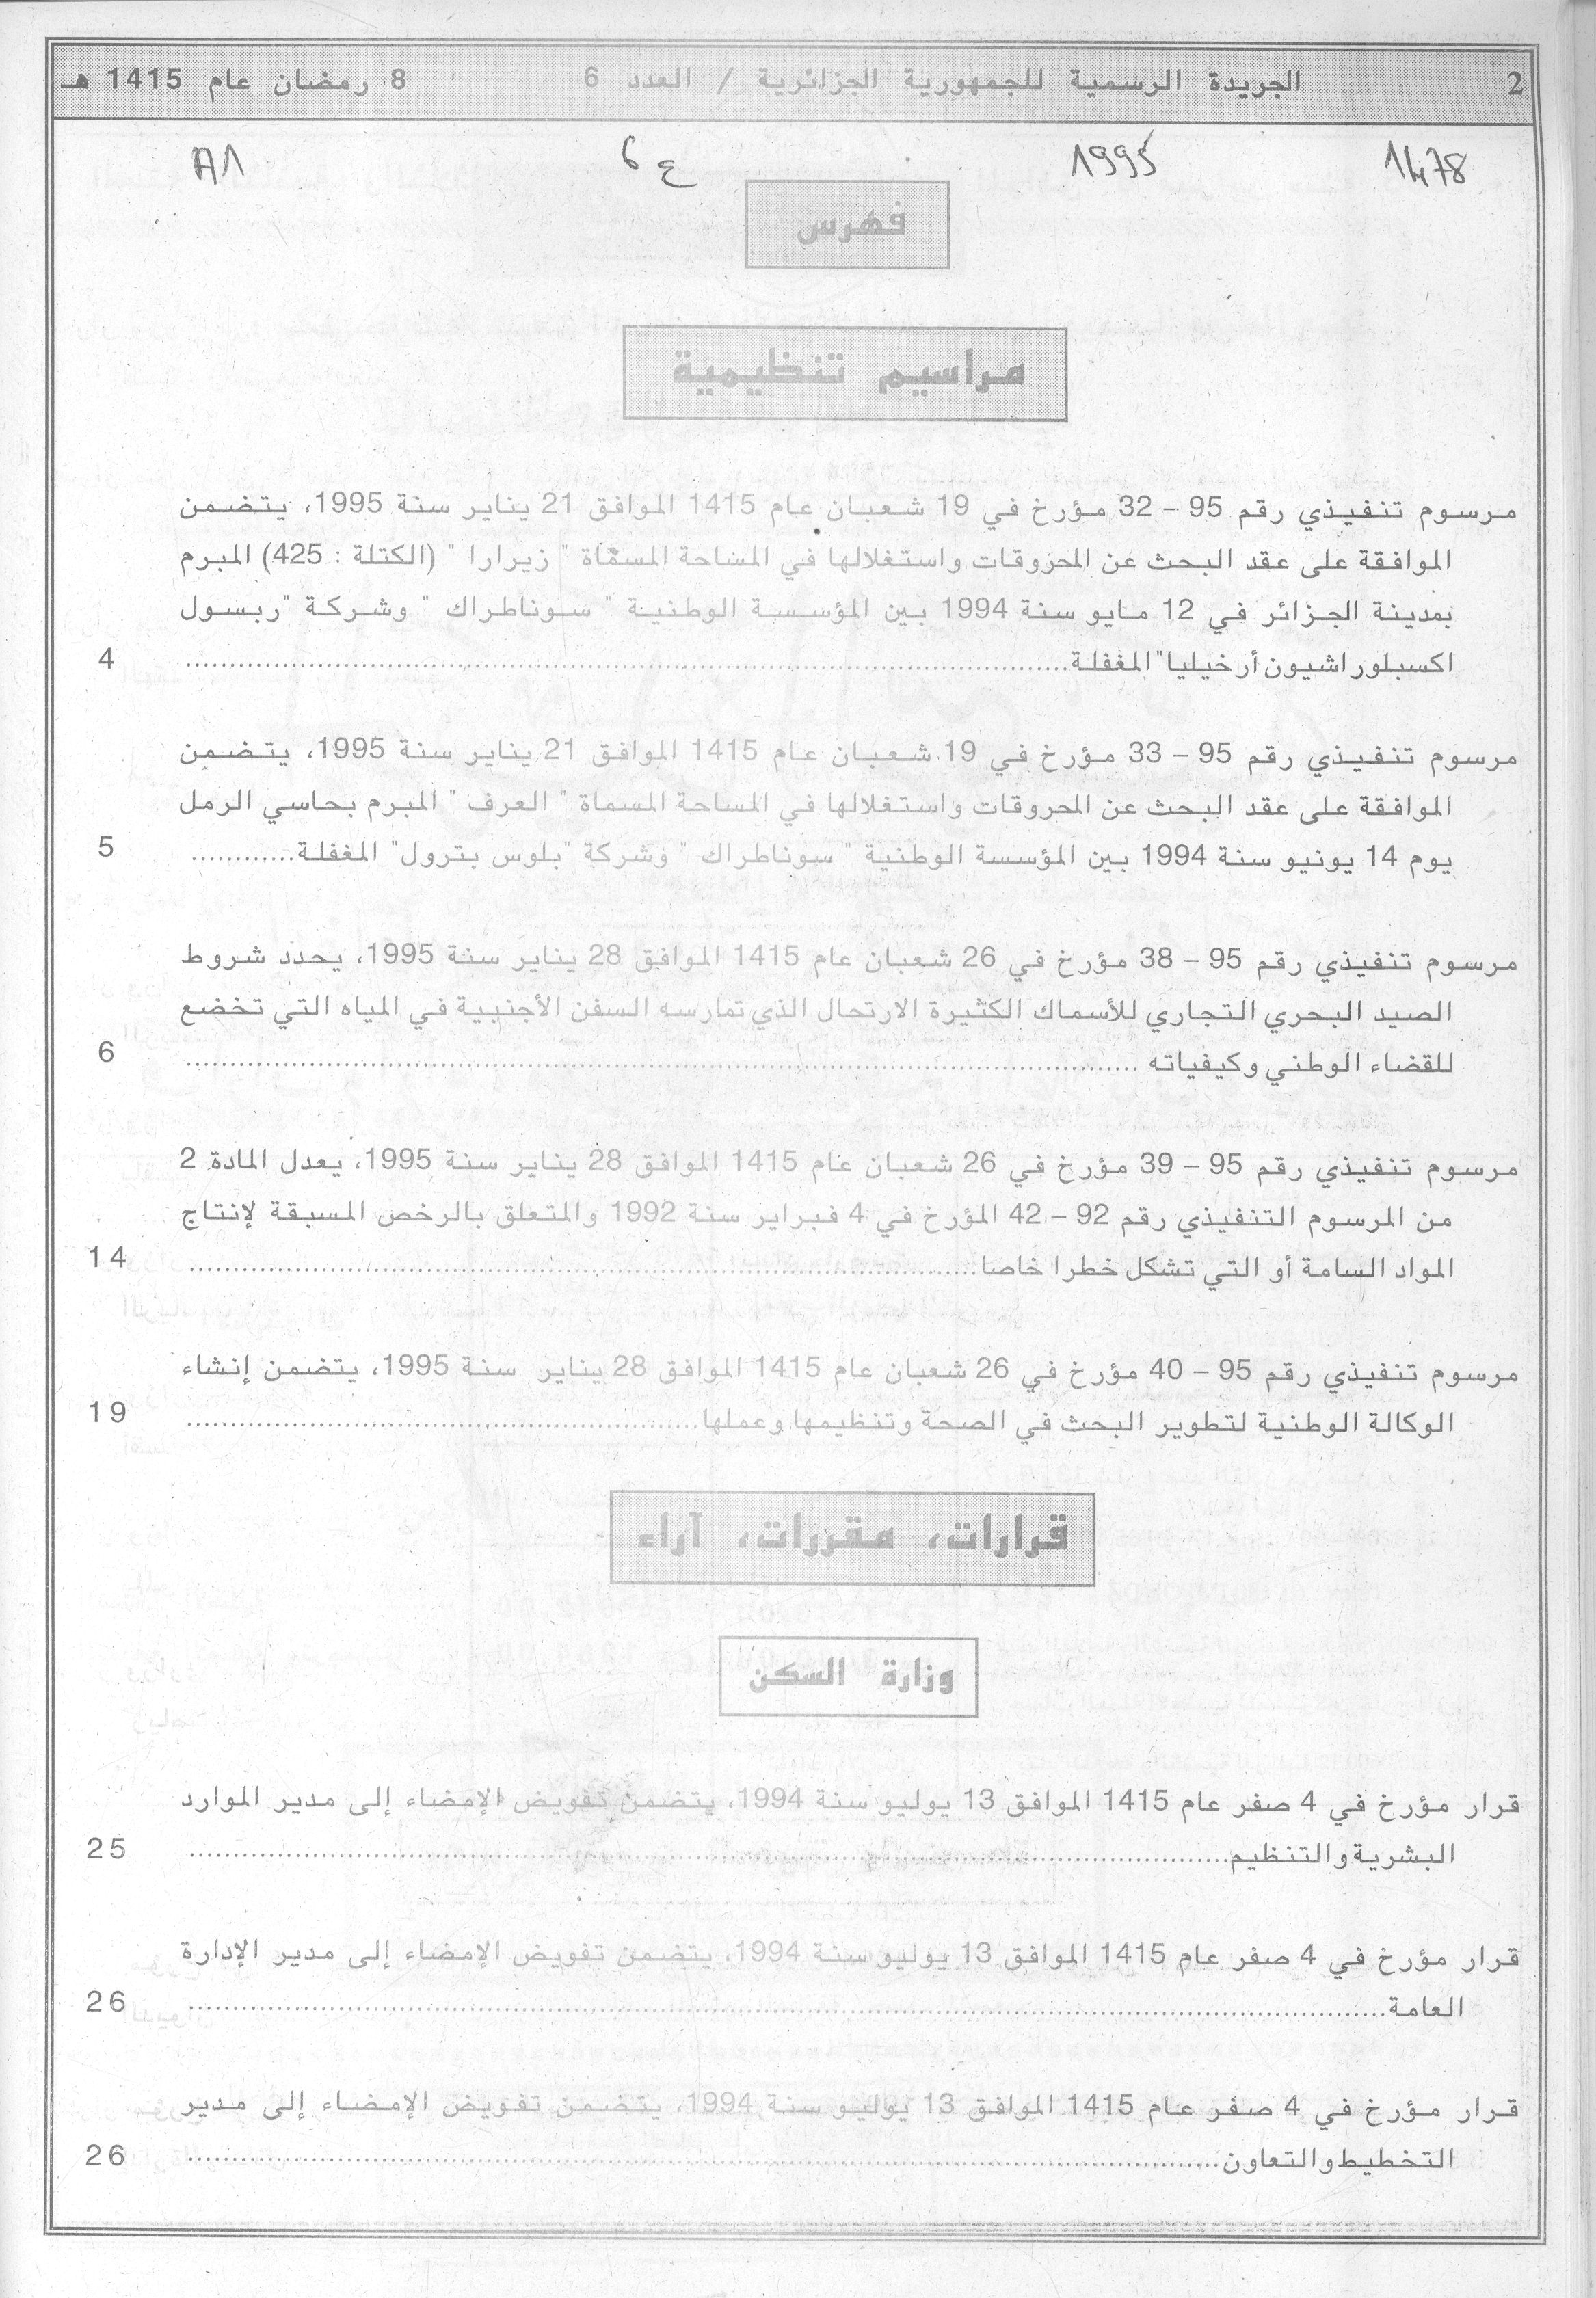 2 الجريدة الرسمية للجمهورية الجزائرية / العدد 6 8 رمضان عام 1415 هـ
1478 1995 ع 6 A1
فهرس
مراسيم تنظيمية
مرسوم تنفيذي رقم 95 – 32 مؤرخ في 19 شعبان عام 1415 الموافق 21 يناير سنة 1995، يتضمن
الموافقة على عقد البحث عن المحروقات واستغلالها في المساحة المسمّاة " زيرارا " (الكتلة : 425) المبرم
بمدينة الجزائر في 12 مايو سنة 1994 بين المؤسسة الوطنية " سوناطراك " وشركة "ربسول
اكسبلوراشيون أرخيليا" المغفلة.................... 4
مرسوم تنفيذي رقم 95 – 33 مؤرخ في 19 شعبان عام 1415 الموافق 21 يناير سنة 1995، يتضمن
الموافقة على عقد البحث عن المحروقات واستغلالها في المساحة المسماة " العرف " المبرم بحاسي الرمل
يوم 14 يونيو سنة 1994 بين المؤسسة الوطنية " سوناطراك " وشركة "بلوس بترول" المغفلة............ 5
مرسوم تنفيذي رقم 95 – 38 مؤرخ في 26 شعبان عام 1415 الموافق 28 يناير سنة 1995، يحدد شروط
الصيد البحري التجاري للأسماك الكثيرة الارتحال الذي تمارسه السفن الأجنبية في المياه التي تخضع
للقضاء الوطني وكيفياته .................... 6
مرسوم تنفيذي رقم 95 – 39 مؤرخ في 26 شعبان عام 1415 الموافق 28 يناير سنة 1995، يعدل المادة 2
من المرسوم التنفيذي رقم 92 – 42 المؤرخ في 4 فبراير سنة 1992 والمتعلق بالرخص المسبقة لإنتاج
المواد السامة أو التي تشكل خطرا خاصا.................... 14
مرسوم تنفيذي رقم 95 – 40 مؤرخ في 26 شعبان عام 1415 الموافق 28 يناير سنة 1995، يتضمن إنشاء
الوكالة الوطنية لتطوير البحث في الصحة وتنظيمها وعملها.................... 19
قرارات، مقررات، آراء
وزارة السكن
قرار مؤرخ في 4 صفر عام 1415 الموافق 13 يوليو سنة 1994، يتضمن تفويض الإمضاء إلى مدير الموارد
البشرية والتنظيم.................... 25
قرار مؤرخ في 4 صفر عام 1415 الموافق 13 يوليو سنة 1994، يتضمن تفويض الإمضاء إلى مدير الإدارة
العامة.................... 26
قرار مؤرخ في 4 صفر عام 1415 الموافق 13 يوليو سنة 1994، يتضمن تفويض الإمضاء إلى مدير
التخطيط والتعاون.................... 26